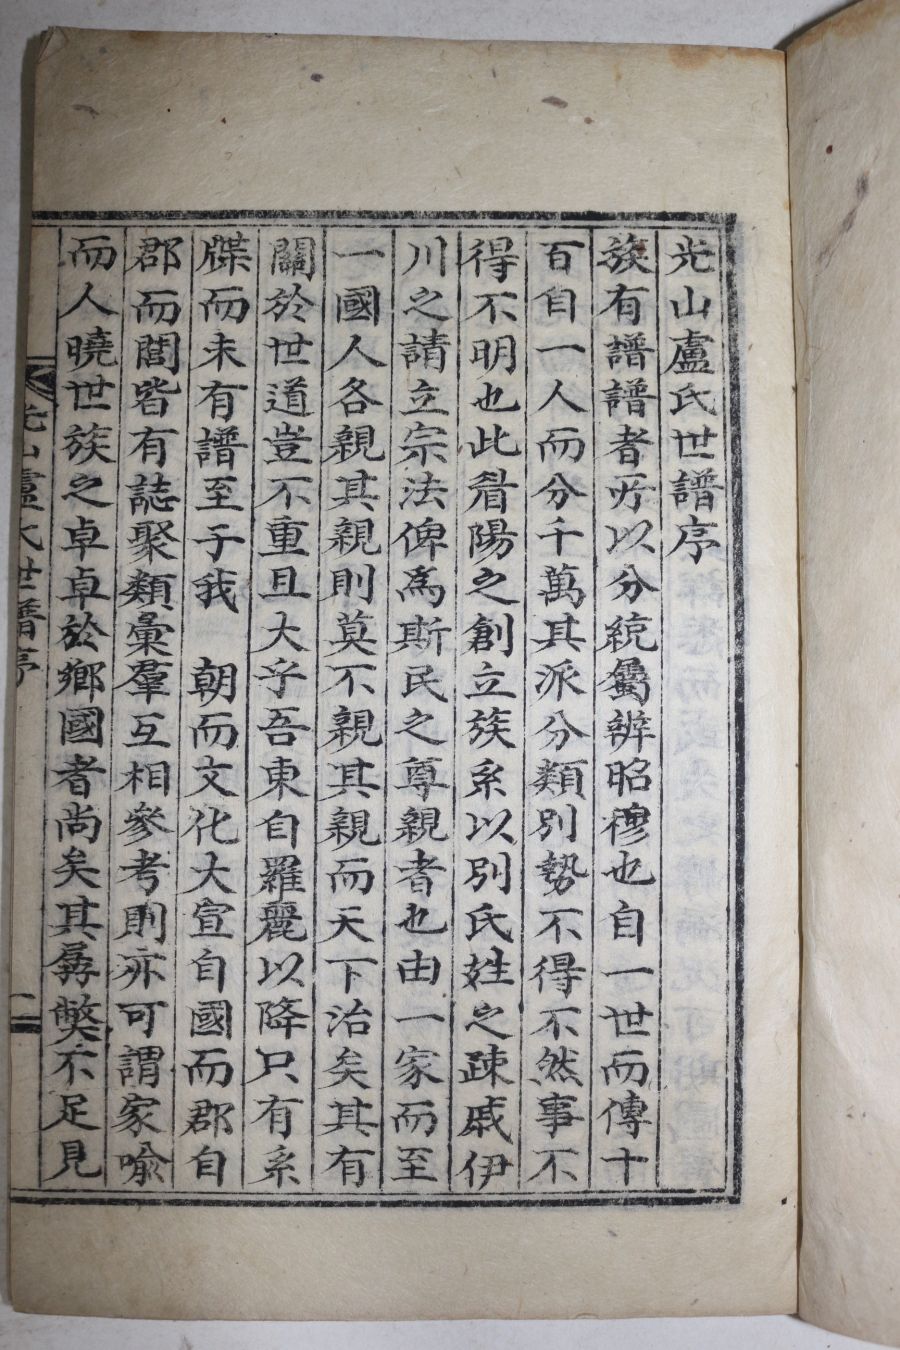 光山盧氏世譜序
族有譜譜者所以分統屬辨昭穆也自一世而傳十
百自一人而分千萬其派分類別勢不得不然事不
得不明也此眉陽之創立族系以別氏姓之疎戚伊
川之請立宗法俾爲斯民之尊親者也由一家而至
一國人各親其親則莫不親其親而天下治矣其有
關於世道豈不重且大乎吾東自羅麗以降只有系
牒而未有譜至于我　朝而文化大宣自國而郡自
郡而閭皆有誌聚類彙羣互相參考則亦可謂家喩
而人曉世族之卓卓於鄉國者尚矣其孱弊不足見
光山盧氏世譜序
一